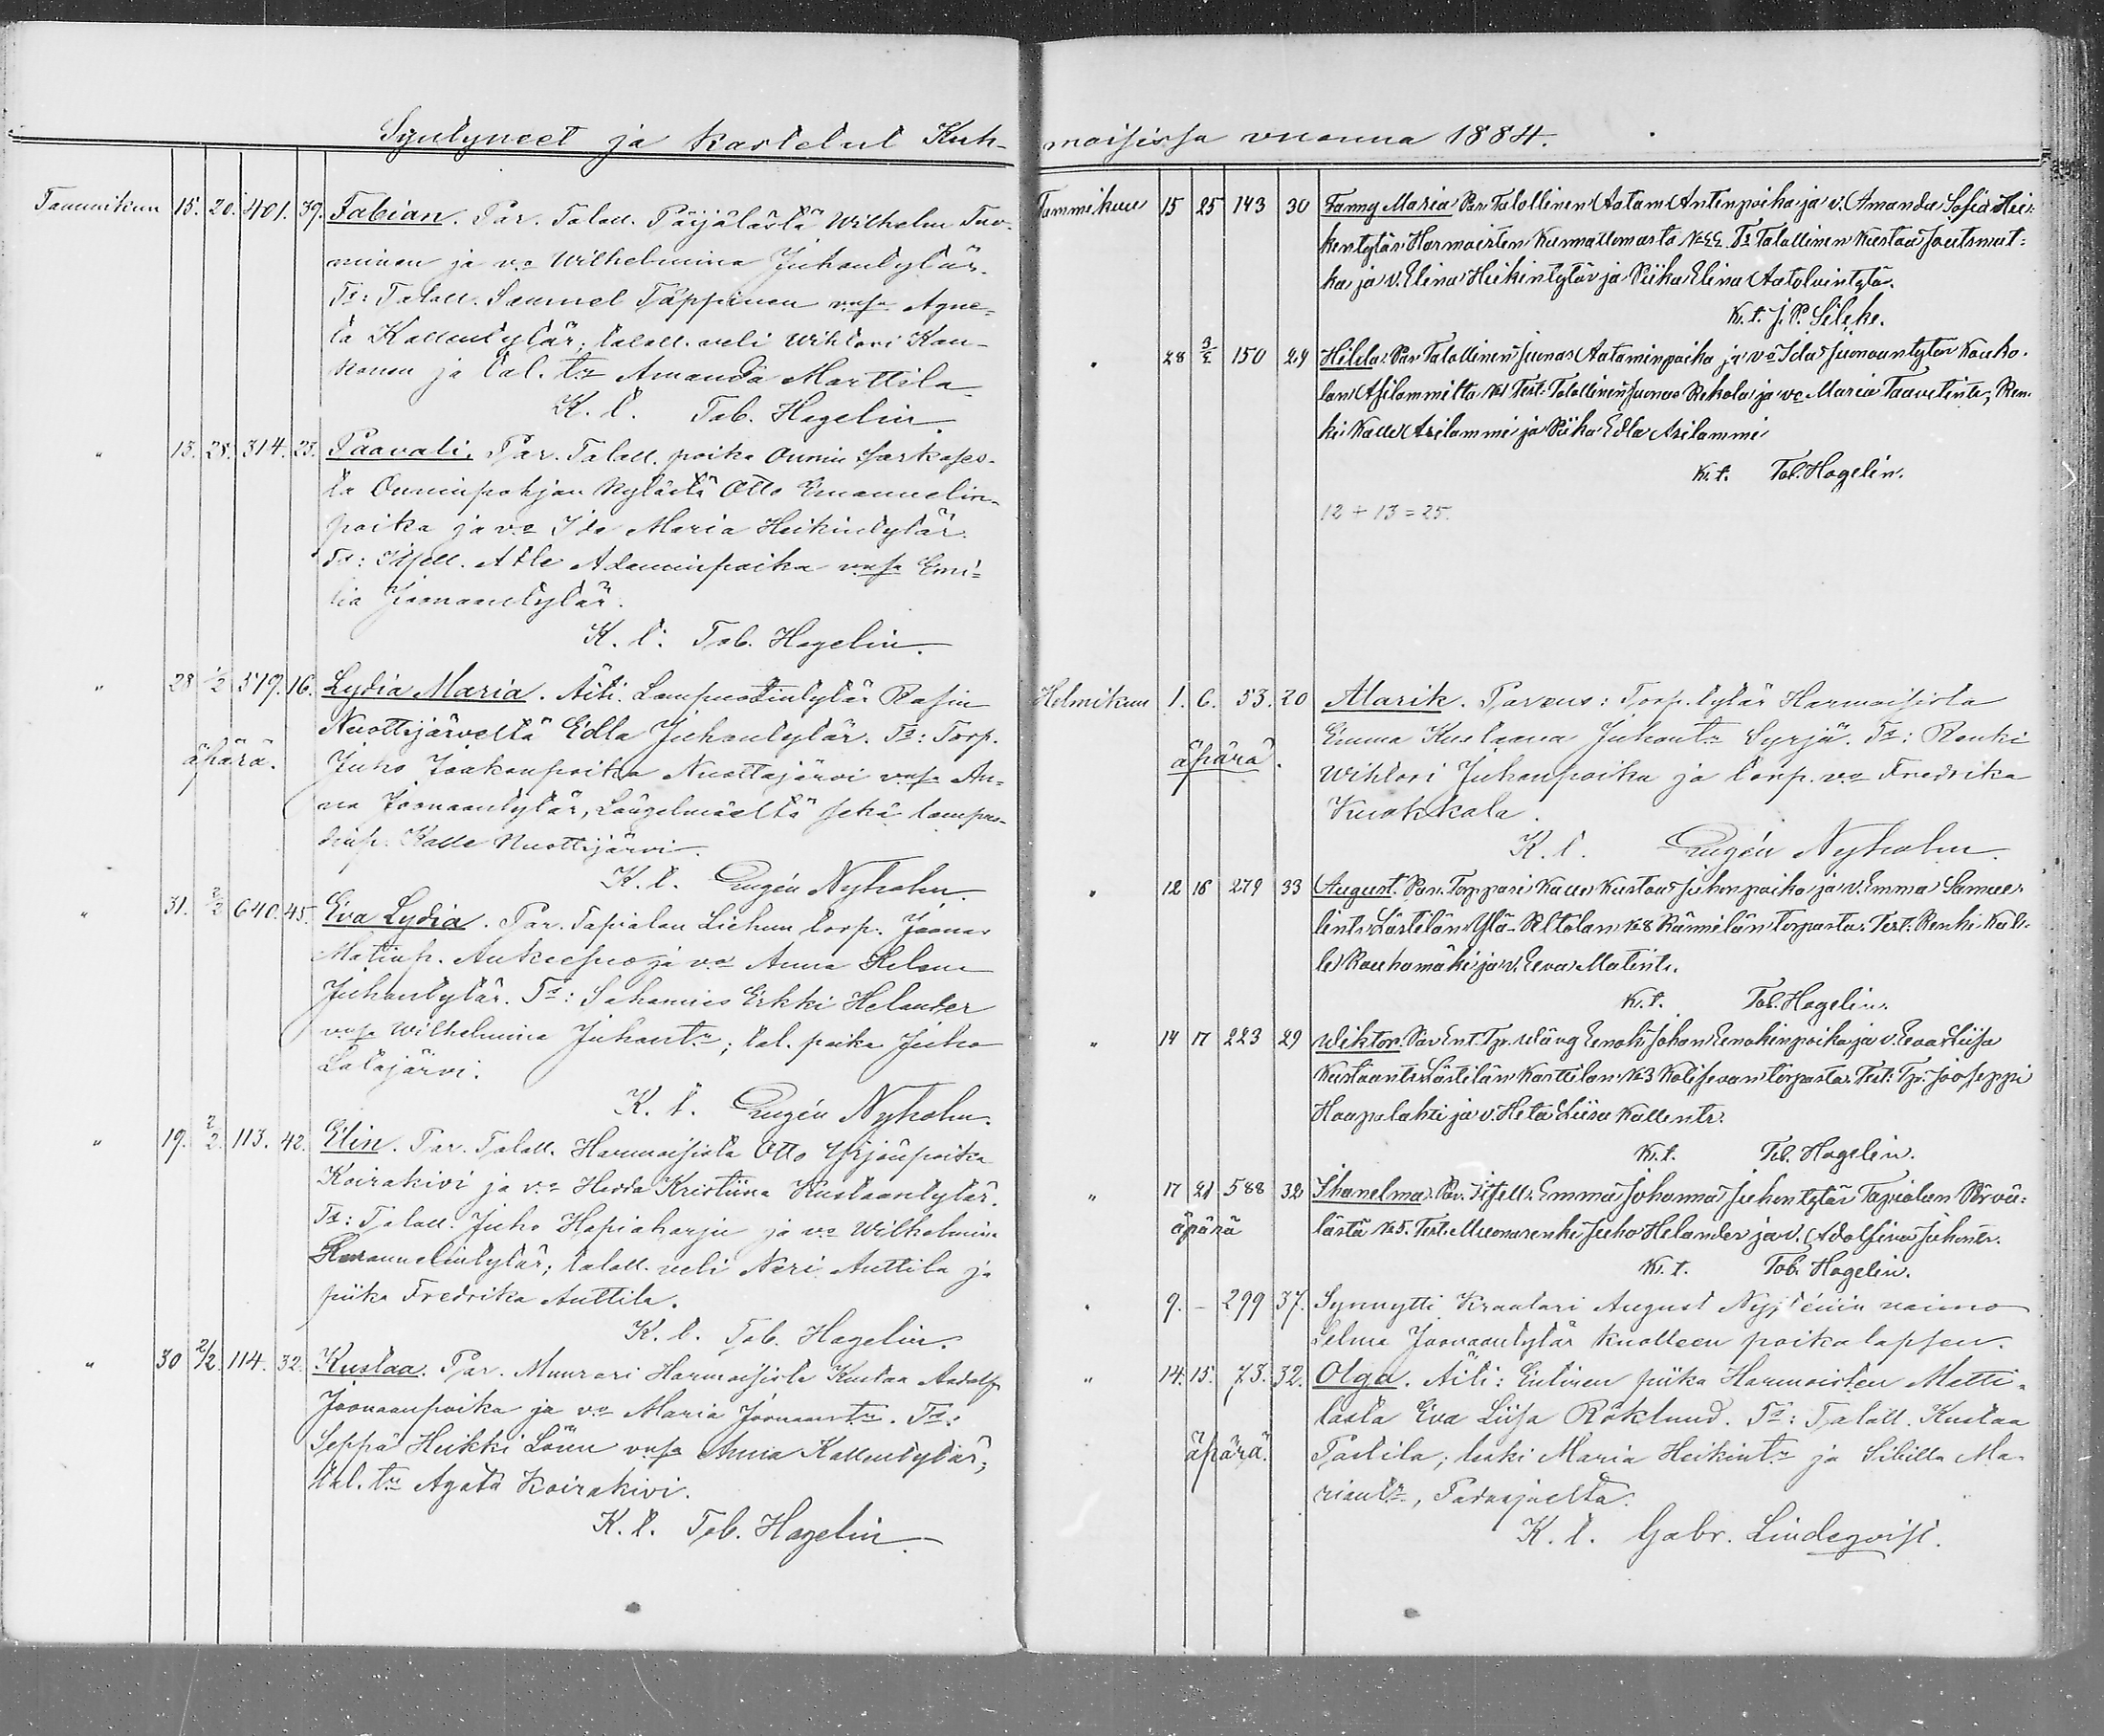 Syntyneet ja kastetut Kuh-
Tammikun 15. 20. 401. 39. Fabian. Par. Talall. Päijälästä Wilhelm Tuo-
minen ja v:o Wilhelmina Juhantytär.
T:t: Talall. Samuel Täppinen vasa Agne-
ta Kallentytär; talall. veli Wihtori Kau-
konen ja tal. t:r Amanda Marttila
K. t. Tob. Hagelin.
" 15. 28. 314. 25. Paavali. Par. Talall. poika Ounin
ta Ouninpohjan kylästä Otto Emanuelin-
poika ja v:o Ida Maria Heikintytär.
T:t: Itsell. Atle Adaminpoika vasa Emi-
lia Joonaantytär.
K. t. Tob. Hagelin.
" 28 1/2 579. 16. Lydia Maria. Äiti. Lampuotintytär Rasin
Nuottijärveltä Edla Juhantytär. T:t: Torp.
äpärä. Juho Jaakonpoika Nuottajärvi vasa An-
na Joonaantytär, Längelmäeltä sekä lampuo-
tinp. Kalle Nuottijärvi.
K. t. Eugén Nyholm.
" 31. 2/2 640. 45. Eva Lydia. Par. Tapialan Liehun torp. Joonas
Matinp. ja v:o Anna Helena
Juhantytär. T:t: Sahamies Erkki Helander
vasa Wilhelmina Juhant:r; tal. poika Juho
Latajärvi.
K. t. Eugén Nyholm.
" 19. 2/2. 113. 42. Elin. Par. Talall. Harmoisista Otto Yrjönpoika
Koirakivi ja v:o Hedda Kristiina Kustaantytär.
T:t: Talall. Juho Hapiaharju ja v:o Wilhelmina
Emanuelintytär; talall. veli Neri Anttila ja
piika Fredrika Anttila.
K. t. Tob. Hagelin.
" 30 2/2. 114. 32. Kustaa. Par. Muurari Harmoisista Kustaa Aadolf
Joonaanpoika ja v:o Maria Joonaant:r. T:t:
Seppä Heikki Lönn vasa Anna Kallentytär;
tal. t:r Agata Koirakivi.
K. t. Tob. Hagelin.
moisissa vuonna 1884.
Tammikuu 15 25 143 30 Fanny Maria Par. Talollinen Aatam Antinpoika ja v. Amanda Sofia Hei:
kintytär Harmoisten Kunnallemasta T:t Talollinen Kustaa Joutsmut:
ka ja v. Elina Heikintytär ja Piika Elina Aatolvintytä.
K. t. J. P. Silehe.
" 28 3/2 150 29 Hilda. Par. Talollinen Juonas Aataminpoika ja v:o Ida Juonaantytär Kauko.
lan Asilammilta N:1 Test: Talollinen Juonas Rekola ja v:o Maria Taavetintr, Ren.
ki Kalle Asilammi ja Piika Edla Asilammi
K. t. Tob. Hagelin.
12 + 13 = 25.
Helmikuu 1. 6. 53. 20 Alarik. Parens: Torp. tytär Harmoisista
Emma Kustaava Juhant:r Syrjä. T:t: Renki
äpärä. Wihtori Juhanpoika ja torp. v:o Fredrika
Kuokkala.
K. t. Eugén Nyholm.
" 12 16 279 33 August. Par. Torppari Kalle Kustaa Juhonpoika ja v. Emma Samue-
lintr. Lästilän Ylä-Peltolan N:8 Rännilän torpasta. Test: Renki Kal-
le Rauhamäki ja v. Eeva Matintr.
K. t. Tob. Hagelin.
" 14 17 223 29 Wiktor. Par. Ent. Tpr. Eenok Johan Eenokinpoika ja v. Eeva Liisa
Kustaantr. Lästilän Karttilan N:3 torpasta. Test: Tpr. Jooseppi
Haapalahti ja v. Heta Liisa Kallentr.
K. t. Tob. Hagelin.
" 17 21 588 32 Ihanelma. Par. Itsell. Emma Johanna Juhontytär Tapialan
äpärä lästä N:5. Test. Muonarenki Juho Helander ja v. Adolfina Juhontr.
K. t. Tob. Hagelin.
" 9. – 299 37. Synnytti Kraatari August vaimo
Selma Joonaantytär kuolleen poikalapsen.
" 14. 15. 73. 32. Olga. Äiti: Entinen piika Harmoisten Matti-
lasta Eva Liisa Röklund. T:t: Talall. Kustaa
äpärä. Pastila; leski Maria Heikint:r ja Sibilla Ma-
riant:r, Padasjoelta.
K. t. Gabr. Lindeqvist.